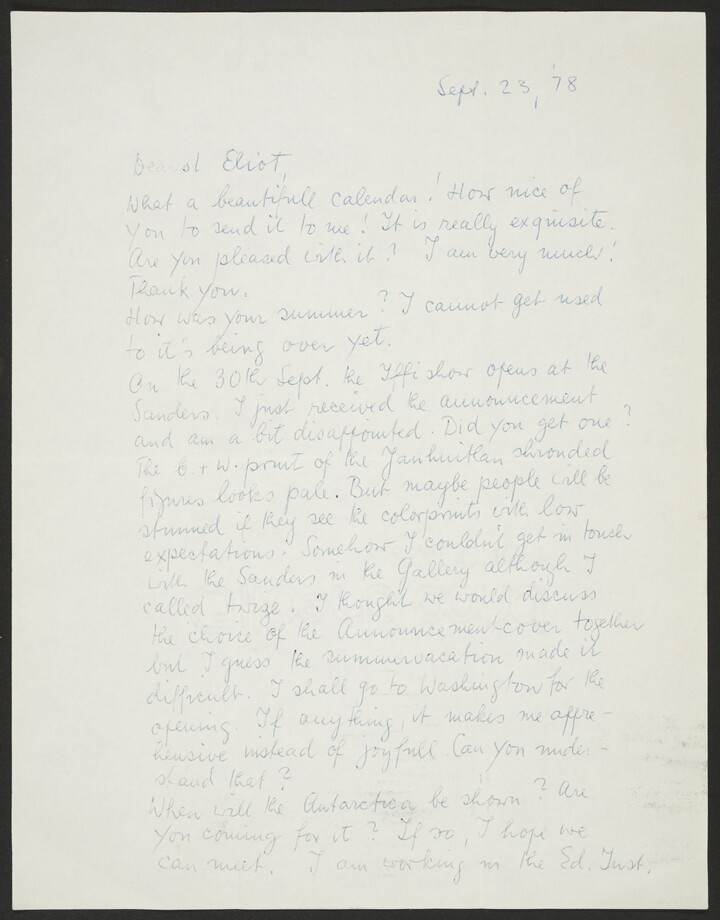 Sept. 23, '78
Dearest Eliot,
What a beautifull calendar! How nice of
you to send it to me! It is really exquisite.
Are you pleased with it? I am very much!
Thank you.
How was your summer? I cannot get used
to it's being over yet.
On the 30th Sept. the show opens at the
Sanders. I just received the announcement
and am a bit disappointed. Did you get one?
The b. + w. print of the Yanhuitlan shrouded
figures looks pale. But maybe people will be
stunned if they see the colorprints with low
expectations. Somehow I couldn't get in touch
with the Sanders in the Gallery although I
called twize. I thought we would discuss
the choice of the Announcementcover together
but I guess the summervacation made it
difficult. I shall go to Washington for the
opening. If anything, it makes me appre-
hensive instead of joyfull. Can you under-
stand that?
When will the Antarctica be shown? Are
you coming for it? If so, I hope we
can meet. I am working in the Ed. Inst.